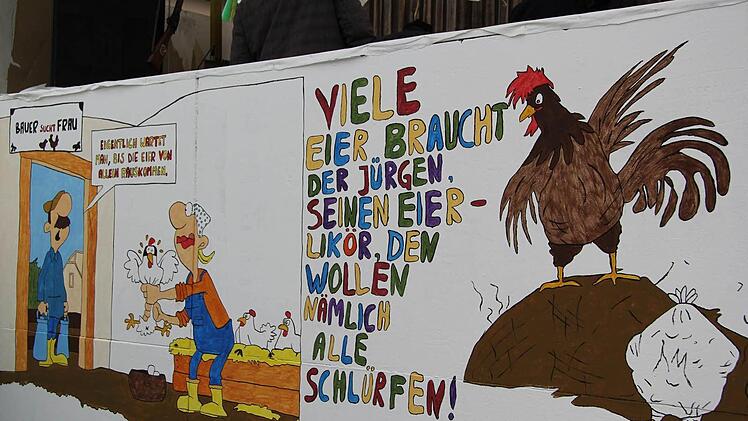 BAUER SUCHT FRAU
EIGENTLICH WARTET
MAN, BIS DIE EIER VON
ALLEIN RAUSKOMMEN.
VIELE
EIER BRAUCHT
DER JÜRGEN,
SEINEN EIER-
LIKÖR, DEN
WOLLEN
NÄMLICH
ALLE
SCHLÜRFEN!